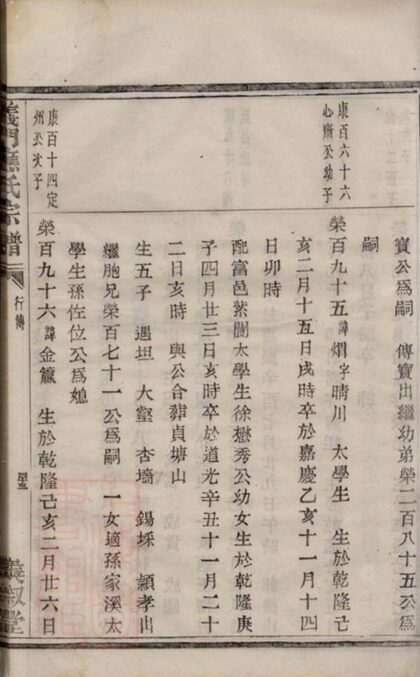 康百六十六
心齋公幼子
寶公爲嗣 傳寶出繼幼弟榮二百八十五公爲
嗣
榮百九十五諱熠字晴川 太學生 生於乾隆己
亥二月十五日戌時卒於嘉慶乙亥十一月十四
日卯時
配富邑紫閬太學生徐懋秀公幼女生於乾隆庚
子四月廿三日亥時卒於道光辛丑十一月二十
二日亥時 與公合葬貞塘山
生五子 遇坦 大壑 杏墻 錫埰 頴孝出
繼胞兄榮百七十一公爲嗣 一女適孫家溪太
學生孫佐位公爲媳
康百十四定
州公次子
榮百九十六諱金籯 生於乾隆己亥二月廿六日
義門應氏宗譜
行傳
義淑堂